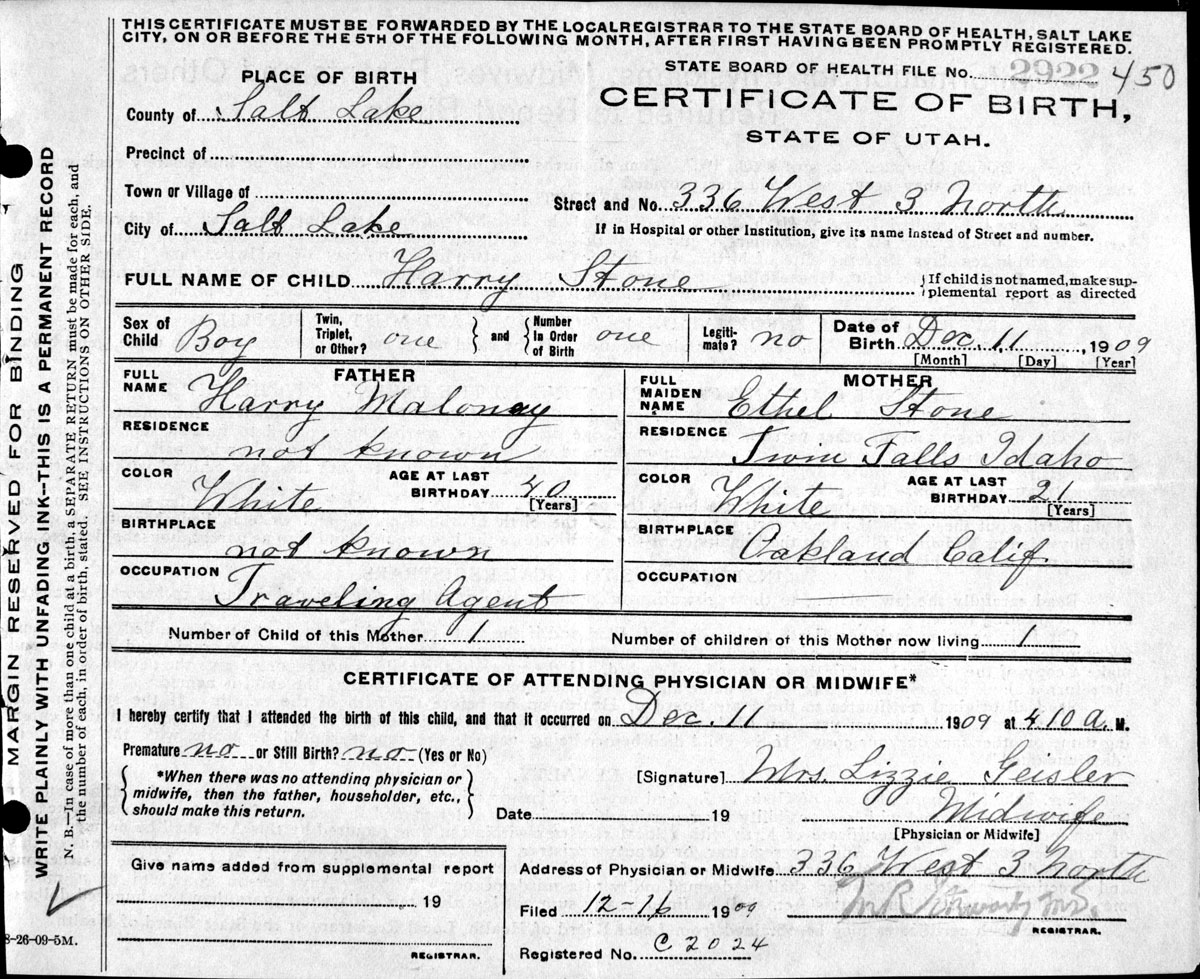 THIS CERTIFICATE MUST BE FORWARDED BY THE LOCAL REGISTRAR TO THE STATE BOARD OF HEALTH, SALT LAKE
CITY, ON OR BEFORE THE 5TH OF THE FOLLOWING MONTH, AFTER FIRST HAVING BEEN PROMPTLY REGISTERED.
STATE BOARD OF HEALTH FILE No. 2922 450
PLACE OF BIRTH
CERTIFICATE OF BIRTH,
STATE OF UTAH.
County of Salt Lake
Precinct of
Town or Village of
Street and No. 336 West 3 North
City of Salt Lake
If in Hospital or other Institution, give its name instead of Street and number.
FULL NAME OF CHILD Harry Stone
If child is not named, make sup-
plemental report as directed
Sex of Child Boy
Twin, Triplet, or Other? one
and
Number In Order of Birth one
Legiti-mate? no
Date of Birth Dec. 11, 1909
[Month] [Day] [Year]
FATHER
FULL NAME Harry Maloney
RESIDENCE not known
COLOR White
AGE AT LAST BIRTHDAY 40
[Years]
BIRTHPLACE not known
OCCUPATION Traveling Agent
MOTHER
FULL MAIDEN NAME Ethel Stone
RESIDENCE Twin Falls Idaho
COLOR White
AGE AT LAST BIRTHDAY 21
[Years]
BIRTHPLACE Oakland Calif.
OCCUPATION
Number of Child of this Mother 1
Number of children of this Mother now living 1
CERTIFICATE OF ATTENDING PHYSICIAN OR MIDWIFE*
I hereby certify that I attended the birth of this child, and that it occurred on Dec. 11 1909 at 4 10 a. M.
Premature no or Still Birth? no (Yes or No)
*When there was no attending physician or
midwife, then the father, householder, etc.,
should make this return.
[Signature] Mrs. Lizzie Geisler
Date 19 Midwife
[Physician or Midwife]
Give name added from supplemental report
19
REGISTRAR.
Address of Physician or Midwife 336 West 3 North
Filed 12-16 1909
REGISTRAR.
Registered No. C 2024
8-26-09-5M.
MARGIN RESERVED FOR BINDING
WRITE PLAINLY WITH UNFADING INK--THIS IS A PERMANENT RECORD
N. B.--In case of more than one child at a birth, SEPARATE RETURN must be made for each, and
the number of each, in order of birth, stated. SEE INSTRUCTIONS ON OTHER SIDE.